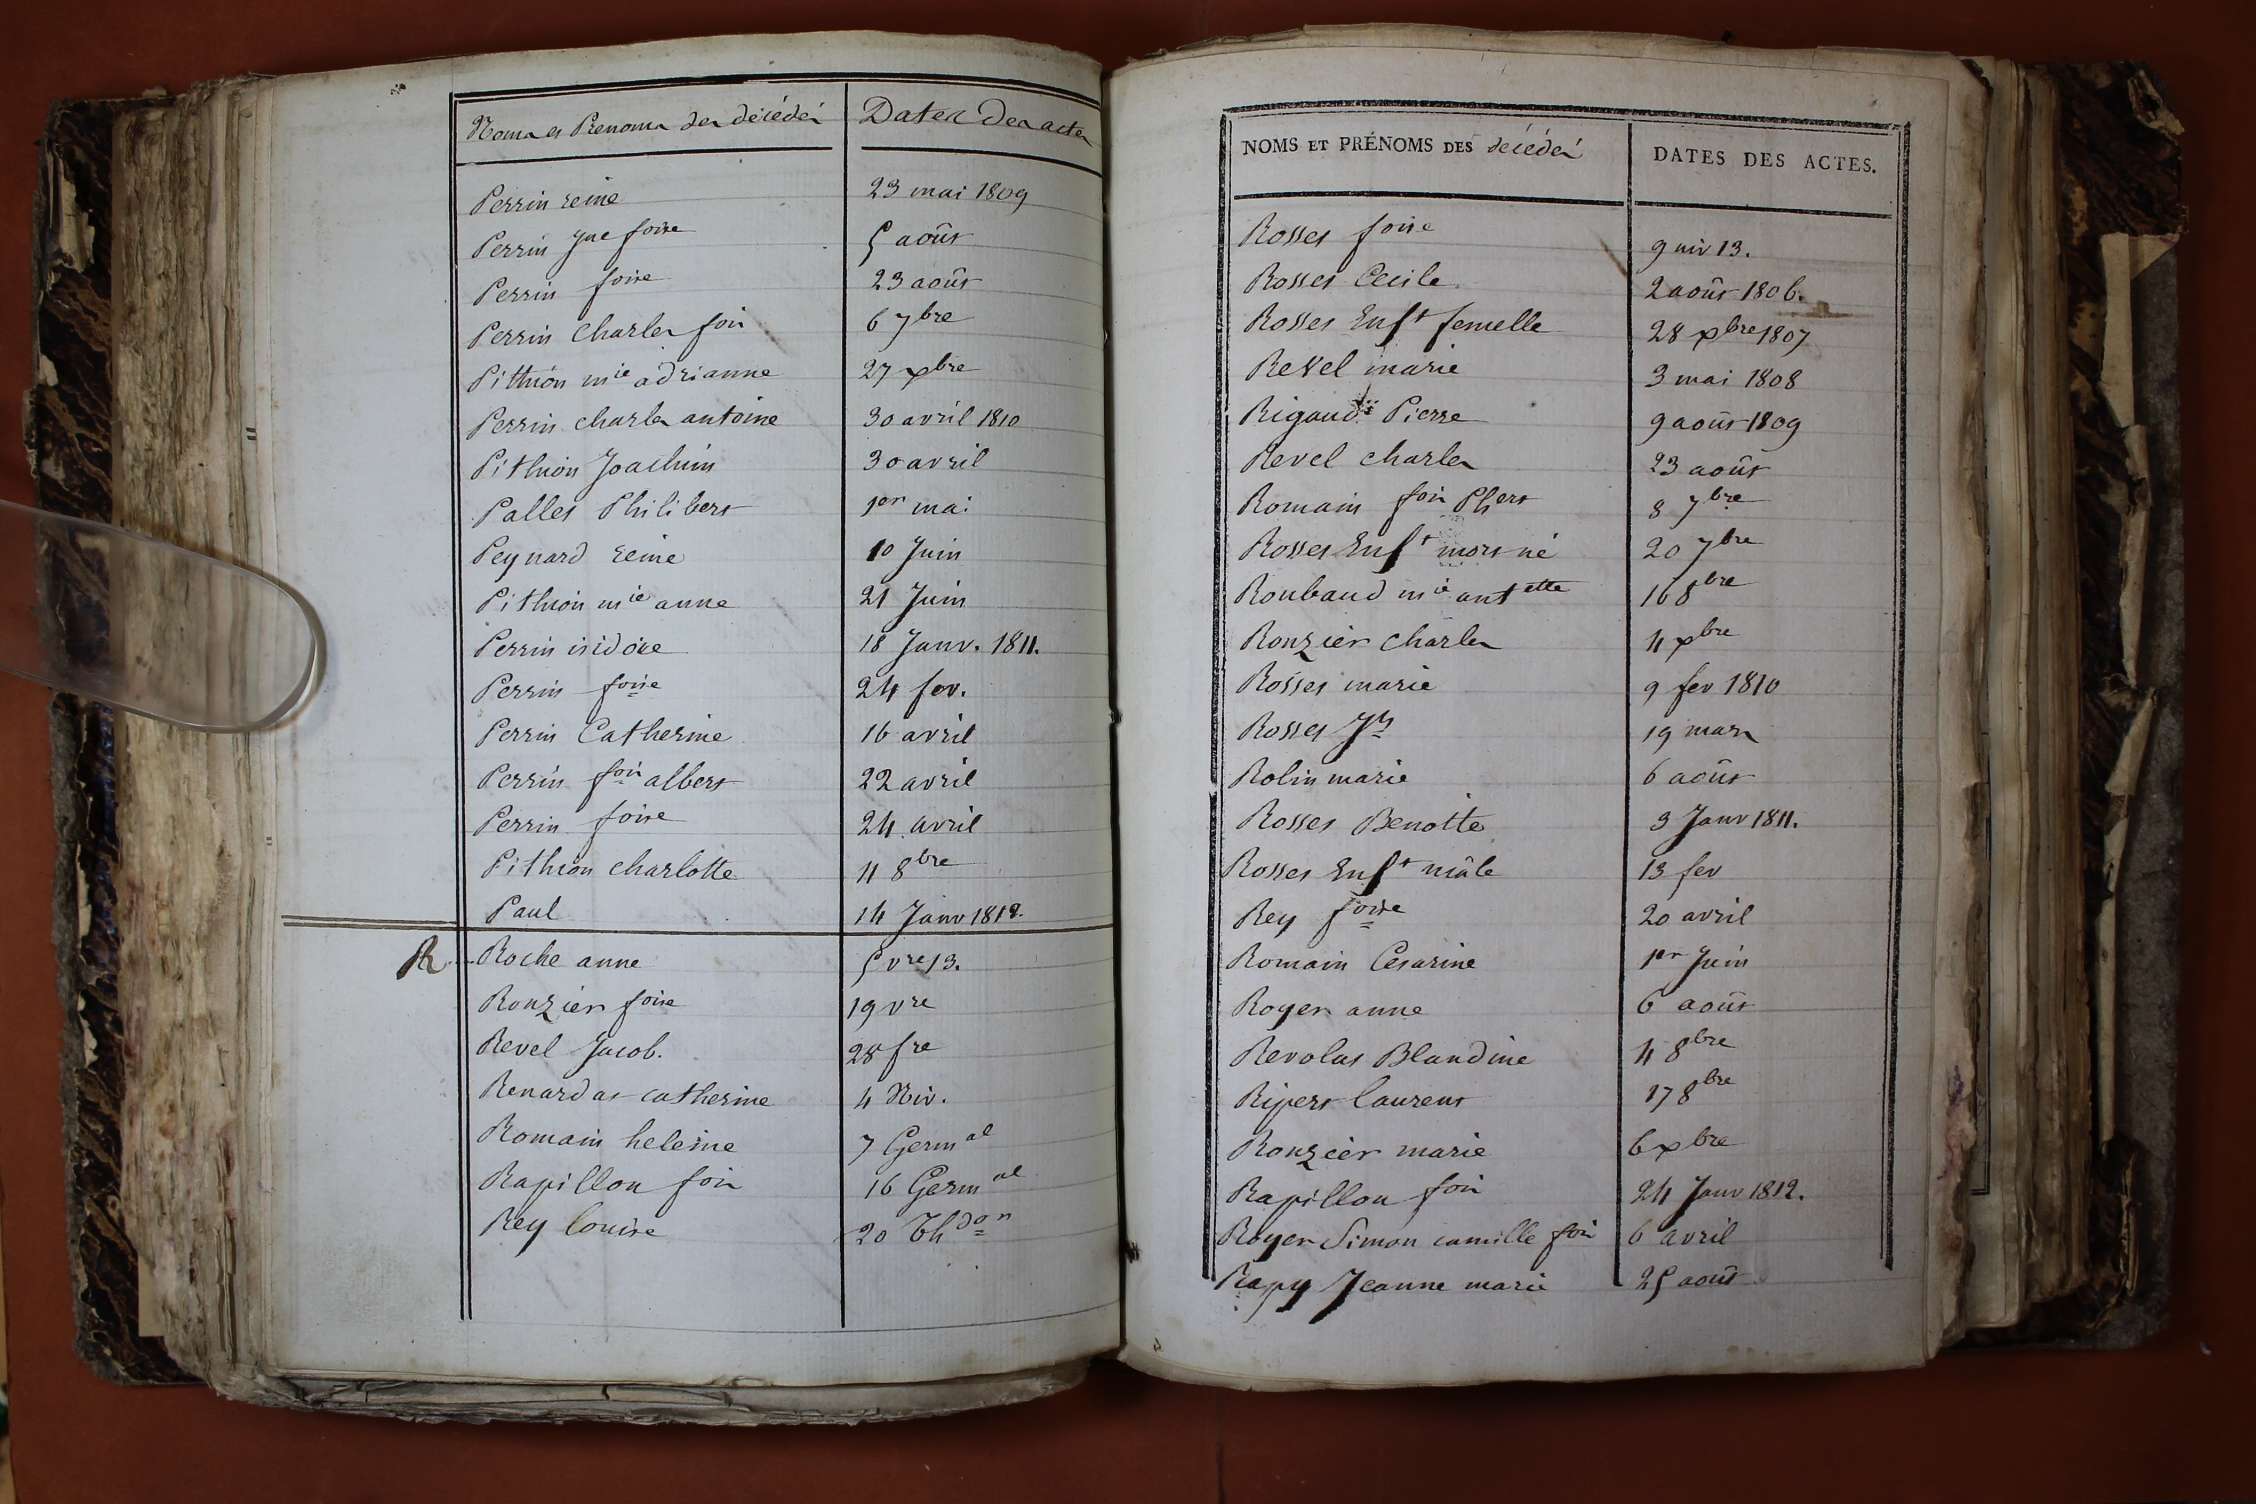 Noms et Prenoms des décédés Dates des actes
Perrin reine 23 mai 1809
Perrin Jne foise 5 août
Perrin foise 23 août
Perrin Charles fois 6 7bre
Pithion mie adrianne 27 xbre
Perrin charles antoine 30 avril 1810
Pithion Joachim 30 avril
Pallet Philibert 1er mai
Peynard reine 10 Juin
Pithion mie anne 21 Juin
Perrin isidore 18 Janv. 1811.
Perrin foise 24 fev.
Perrin Catherine 16 avril
Perrin fois albert 22 avril
Perrin foise 24 avril
Pithion charlotte 4 8bre
Paul 14 Janv 1812.
R
Roche anne 5 vre 13.
Ronzier foise 19 vre
Revel Jacob. 28 fre
Renardat catherine 4 Niv.
Romain heleine 7 Germal
Rapillon fois 16 Germal
Rey louise 20 Thdon
NOMS ET PRÉNOMS DES décédés DATES DES ACTES.
Rosset foise 9 niv 13.
Rosset Cecile 2 août 1806.
Rosset Enft femelle 28 xbre 1807
Revel marie 3 mai 1808
Rigaud Pierre 9 août 1809
Revel charles 23 août
Romain fois Phert 8 7bre
Rosset Enft mort né 20 7bre
Roubaud mie antette 16 8bre
Ronzier charles 4 xbre
Rosset marie 9 fev 1810
Rosset Jh 19 mars
Rolin marie 6 août
Rosset Benoite 3 Janv 1811.
Rosset Enft mâle 13 fev
Rey foise 20 avril
Romain Cesarine 1er Juin
Royer anne 6 août
Revolat Blandine 4 8bre
Ripert laurent 17 8bre
Ronzier marie 6 xbre
Rapillon fois 24 Janv 1812.
Royer Simon camille fois 6 avril
Rapy Jeanne marie 25 août